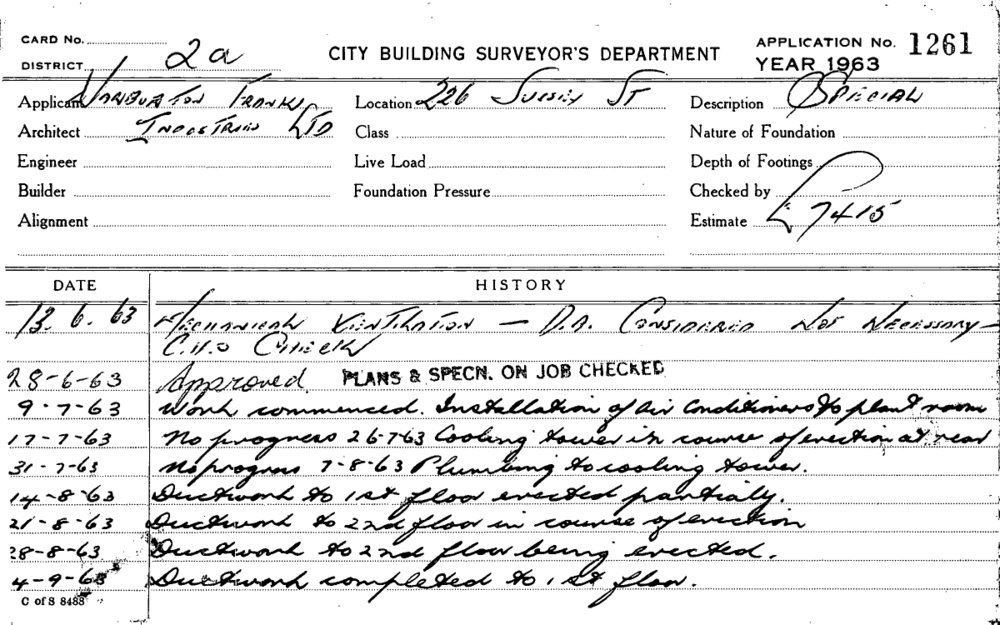 CARD No.
DISTRICT 2a
CITY BUILDING SURVEYOR'S DEPARTMENT
APPLICATION No. 1261
YEAR 1963
Applicant Warburton Franki Location 226 Sussex St Description Special
Architect Industries Ltd Class Nature of Foundation
Engineer Live Load Depth of Footings
Builder Foundation Pressure Checked by
Alignment Estimate £7415
DATE HISTORY
13.6.63 Mechanical Ventilation — D.A. Considered Not Necessary —
C.H.O Check
28-6-63 Approved PLANS & SPECN. ON JOB CHECKED
9-7-63 Work commenced. Installation of air conditioners to plant room
17-7-63 No progress 26-7-63 Cooling tower in course of erection at rear
31-7-63 No progress 7-8-63 Plumbing to cooling tower.
14-8-63 Ductwork to 1st floor erected partialy.
21-8-63 Ductwork to 2nd floor in course of erection
28-8-63 Ductwork to 2nd floor being erected.
4-9-63 Ductwork completed to 1st floor.
C of S 8488